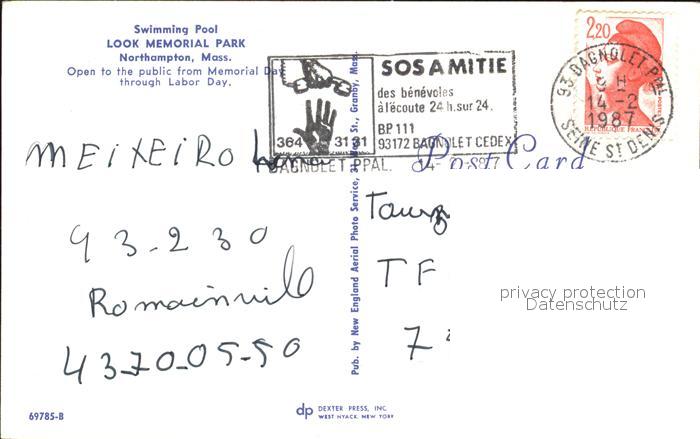 Swimming Pool
LOOK MEMORIAL PARK
Northampton, Mass.
Open to the public from Memorial Day
through Labor Day.
SOS AMITIE
des bénévoles
à l'écoute 24 h. sur 24.
BP 111
364 31 31
93172 BAGNOLET CEDEX
BAGNOLET PPAL. 14- 1987
2,20
POSTES
REPUBLIQUE FRANCAISE
93 BAGNOLET PPAL
9 H
14 -2
1987
SEINE ST DENIS
Post Card
MEIXEIRO
93-230
Romainville
4370-05-50
TF
7
Pub. by New England Aerial Photo Service, St., Granby, Mass.
privacy protection
Datenschutz
69785-B
dp DEXTER PRESS, INC.
WEST NYACK, NEW YORK